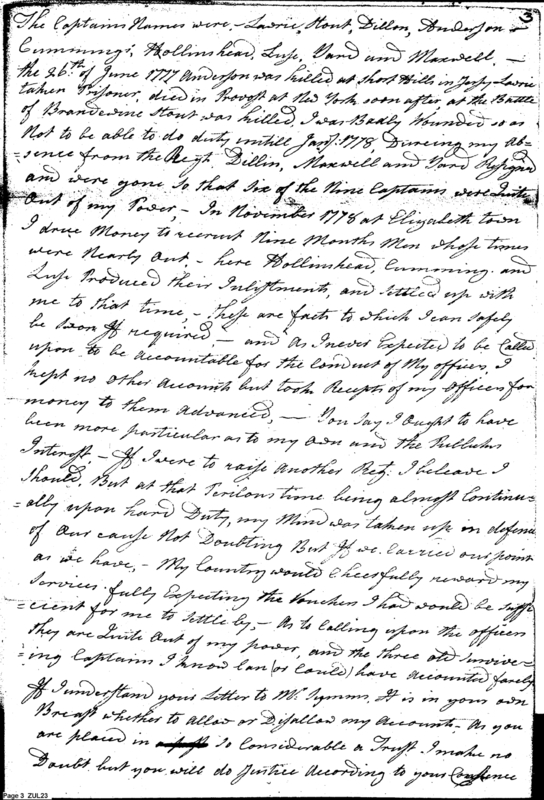 3
The Captains Names were, - Lawrie, Stout, Dillon, Anderson
Cumming, Hollinshead, Luse, Yard and Maxwell, -
the 26th of June 1777 Anderson was killed at Short Hills in Jersy Lawrie
taken Prisoner, died in Provost at New York soon after, at the Battle
of Brandewine Stout was killed, I was Badly Wounded so as
Not to be able to do duty untill Jany. 1778, Dureing my ab=
sence from the Regt. Dillin, Maxwell and Yard Resigned
and were gone So that Six of the Nine Captains were Quite
Out of my Power, - In November 1778 at Elizabeth town
I drue Money to recruit Nine Months Men whose times
were Nearly Out, - here Hollinshead, Cumming and
Luse Produced their Inlistments, and settled up with
me to that time, - these are facts to which I can safely
be Sworn If required, - and as I never Expected to be Called
upon to be accountable for the conduct of My officers, I
kept no other Accounts but took Recepts of my Officers for
money to them Advanced, - You say I ought to have
been more particular as to my Own and the Publicks
Interest, - If I were to raise Another Regt. I beleave I
Should, But at that Perilous time being almost Continu=
=ally upon hard Duty, my Mind was taken up in defence
of Our cause Not Doubting But If we Carried our point
as we have, - My Country would Cheerfully reward my
Services fully Expecting the Vouchers I had would be suffi=
=cient for me to settle by, - As to Calling upon the officers
they are Quite Out of my power, and the three old surviv=
=ing Captains I know Can (or Could) have accounted farely
If I understand your Letter to Mr. Symms, It is in your own
Breast whether to Allow or Disallow my Accounts, As you
are placed in So Considerable a Trust I make no
Doubt but you will do Justice According to your
Page 3 ZUL23